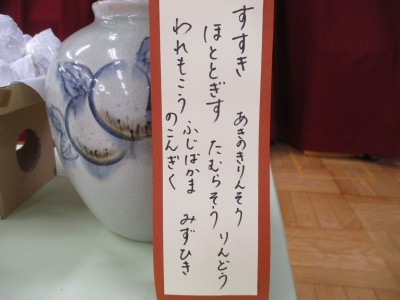 すすき
あきのきりんそう
ほととぎす
たむらそう
りんどう
われもこう
ふじばかま
みずひき
のこんぎく